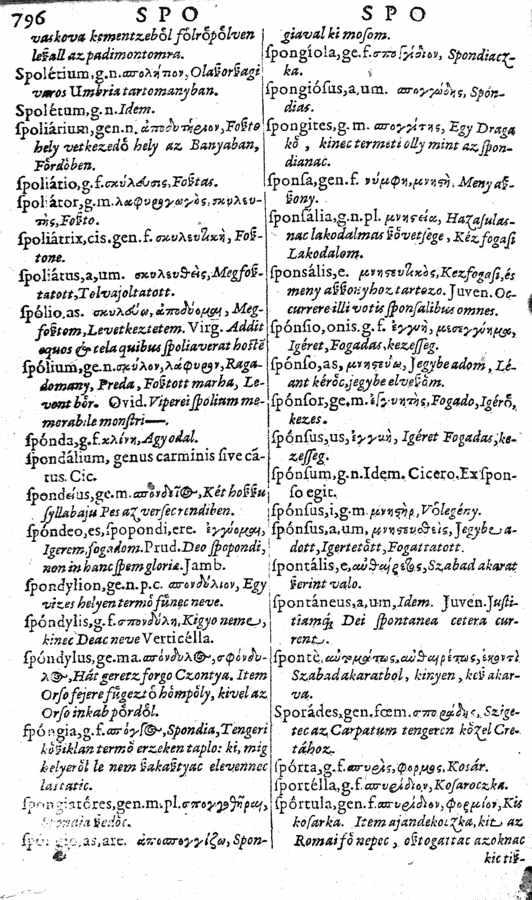 796 SPO SPO
vaskova kementzeből fölröpölven
leſzall az padimontomra.
Spolétium, g.n. σπολήτιον, Olaſzorſzagi
varos Umbria tartomanyban.
Spolétum, g.n. Idem.
ſpoliárium, gen.n. ἀποδυτήριον, Foſzto
hely vetkezedő hely az Banyaban,
Förđöben.
ſpoliátio, g.f. σκύλευσις, Foſztas.
ſpoliátor, g.m. λαφυραγωγὸς, σκυλευ-
τὴς, Foſzto.
ſpoliátrix, cis. gen.f. σκυλευτικὴ, Foſz-
tone.
ſpoliátus, a, um. σκυλευθεὶς, Megfoſz-
tatott, Tolvajoltatott.
ſpólio, as. σκυλεύω, ἀποδύομαι, Meg-
foſztom, Levetkeztetem. Virg. Addit
equos & tela quibus ſpoliaverat hoſtē
ſpólium, gen.n. σκύλον, λάφυρον, Raga-
domany, Preda, Foſztott marha, Le-
vont bőr. Ovid. Viperei ſpolium me-
morabile monſtri—.
ſpónda, g.f. κλίνη, Agy odal.
ſpondálium, genus carminis ſive cā-
tus. Cic.
ſpondéus, ge.m. σπονδεῖος, Két hoſſzu
ſyllabaju Pes az verſec rendiben.
ſpóndeo, es, ſpopondi, ere. ἐγγύομαι,
Igerem, fogadom. Prud. Deo ſpopondi,
non in hanc ſpem gloriæ. Jamb.
ſpondylion, ge.n.p.c. σπονδύλιον, Egy
vizes helyen termő fűnec neve.
ſpóndylis, g.f. σπονδύλη, Kigyo neme,
kinec Deac neve Verticélla.
ſpóndylus, ge.ma. σπόνδυλος, σφόνδυ-
λος, Hát geretz forgo Czontya. Item
Orſo fejere fűgeztő hömpöly, kivel az
Orſo inkab pördöl.
ſpóngia, g.f. σπόγγος, Spondia, Tengeri
köſziklan termő erzeken taplo: ki, mig
helyeről le nem ſzakaſztyac elevennec
laſtatic.
ſpongiatóres, gen.m.pl. σπογγοθῆραι,
Spondia ſzedöc.
as, are. ἀποσπογγίζω, Spon-
giaval ki moſom.
ſpongíola, ge.f. σπογγίδιον, Spondiacz-
ka.
ſpongióſus, a, um. σπογγώδης, Spón-
dias.
ſpongites, g.m. σπογγίτης, Egy Draga
kő, kinec termeti olly mint az ſpon-
dianac.
ſpónſa, gen.f. νύμφη, μνηστὴ, Meny aſz-
ſzony.
ſponſália, g.n.pl. μνηστεία, Hazaſulas-
nac lakodalmas ſzövetſege, Kéz fogaſi
Lakodalom.
ſponsális, e. μνηστευτικὸς, Kezfogaſi, és
meny aſſzonyhoz tartozo. Juven. Oc-
currere illi votis ſponſalibus omnes.
ſpónſio, onis. g.f. ἐγγύη, μεσεγγύημα,
Igéret, Fogadas, kezeſſeg.
ſpónſo, as, μνηστεύω, Jegybe adom, Lé-
ant kéröc, jegybe elveſzöm.
ſpónſor, ge.m. ἐγγυητὴς, Fogado, Igérő,
kezes.
ſpónſus, us, ἐγγύη, Igéret Fogadas, ke-
zeſſeg.
ſpónſum, g.n. Idem. Cicero. Ex ſpon-
ſo egit.
ſpónſus, i, g.m. μνηστὴρ, Vőlegény.
ſpónſus, a, um, μνηστευθεὶς, Jegybe a-
dott, Igertetött, Fogattatott.
ſpontális, e, αὐθαίρετος, Szabad akarat
ſzerint valo.
ſpontáneus, a, um, Idem. Juven. Juſti-
tiamq́; Dei ſpontanea cetera cur-
rent.
ſpontè, αὐτομάτως, αὐθαιρέτως, ἑκοντὶ
Szabad akaratbol, kinyen, keſz akar-
va.
Sporádes, gen.fœm. σποράδης, Szige-
tec az Carpatum tengeren közel Cre-
tához.
ſpórta, g.f. σπυρὶς, φορμὸς, Kosár.
ſportélla, g.f. σπυρίδιον, Koſaroczka.
ſpórtula, gen.f. σπυρίδιον, φορμίον, Kis
koſarka. Item ajandekoczka, kit az
Romai fő nepec, oſztogattac azoknac
kic tiſz-